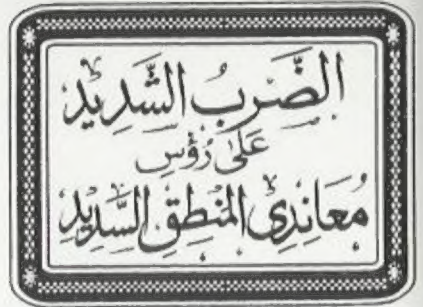 الضَّرْبُ الشَّدِيْدُ
عَلىٰ رُؤُسِ
مُعَانِدِي المَنْطِقِ السَّدِيْدِ